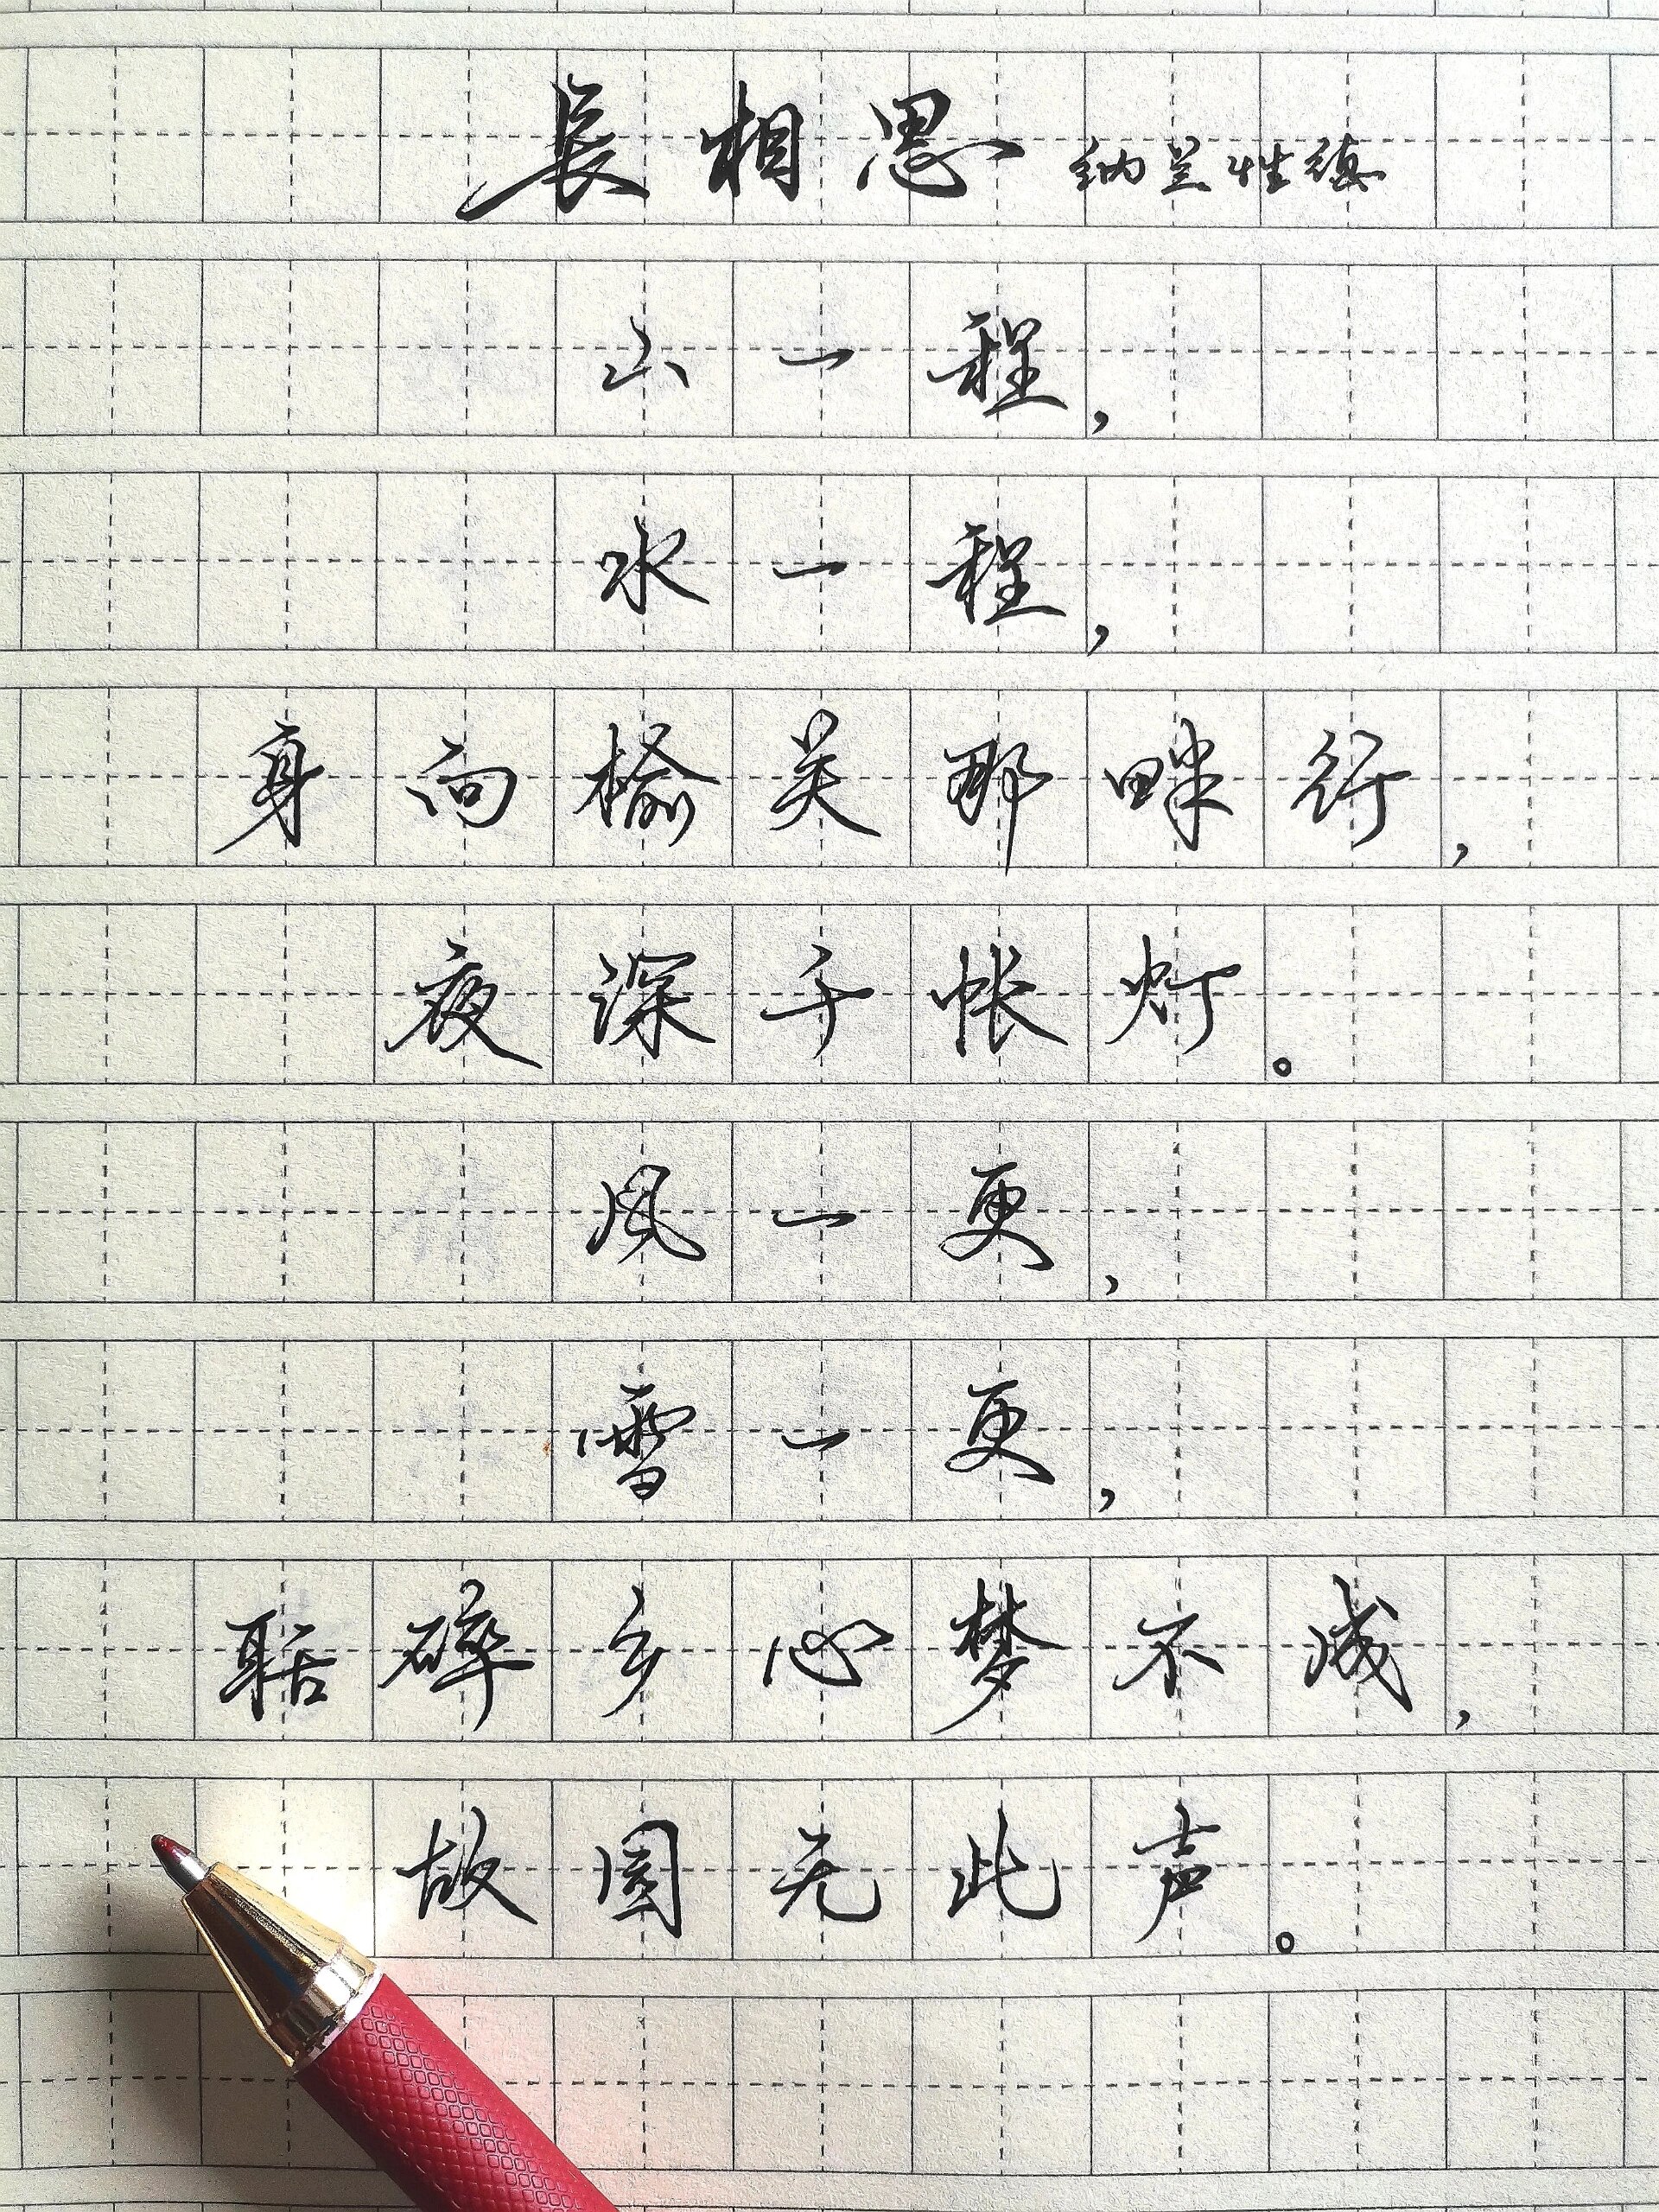 長相思 纳兰性德
山一程，
水一程，
身向榆关那畔行，
夜深千帐灯。
风一更，
雪一更，
聒碎乡心梦不成，
故园无此声。